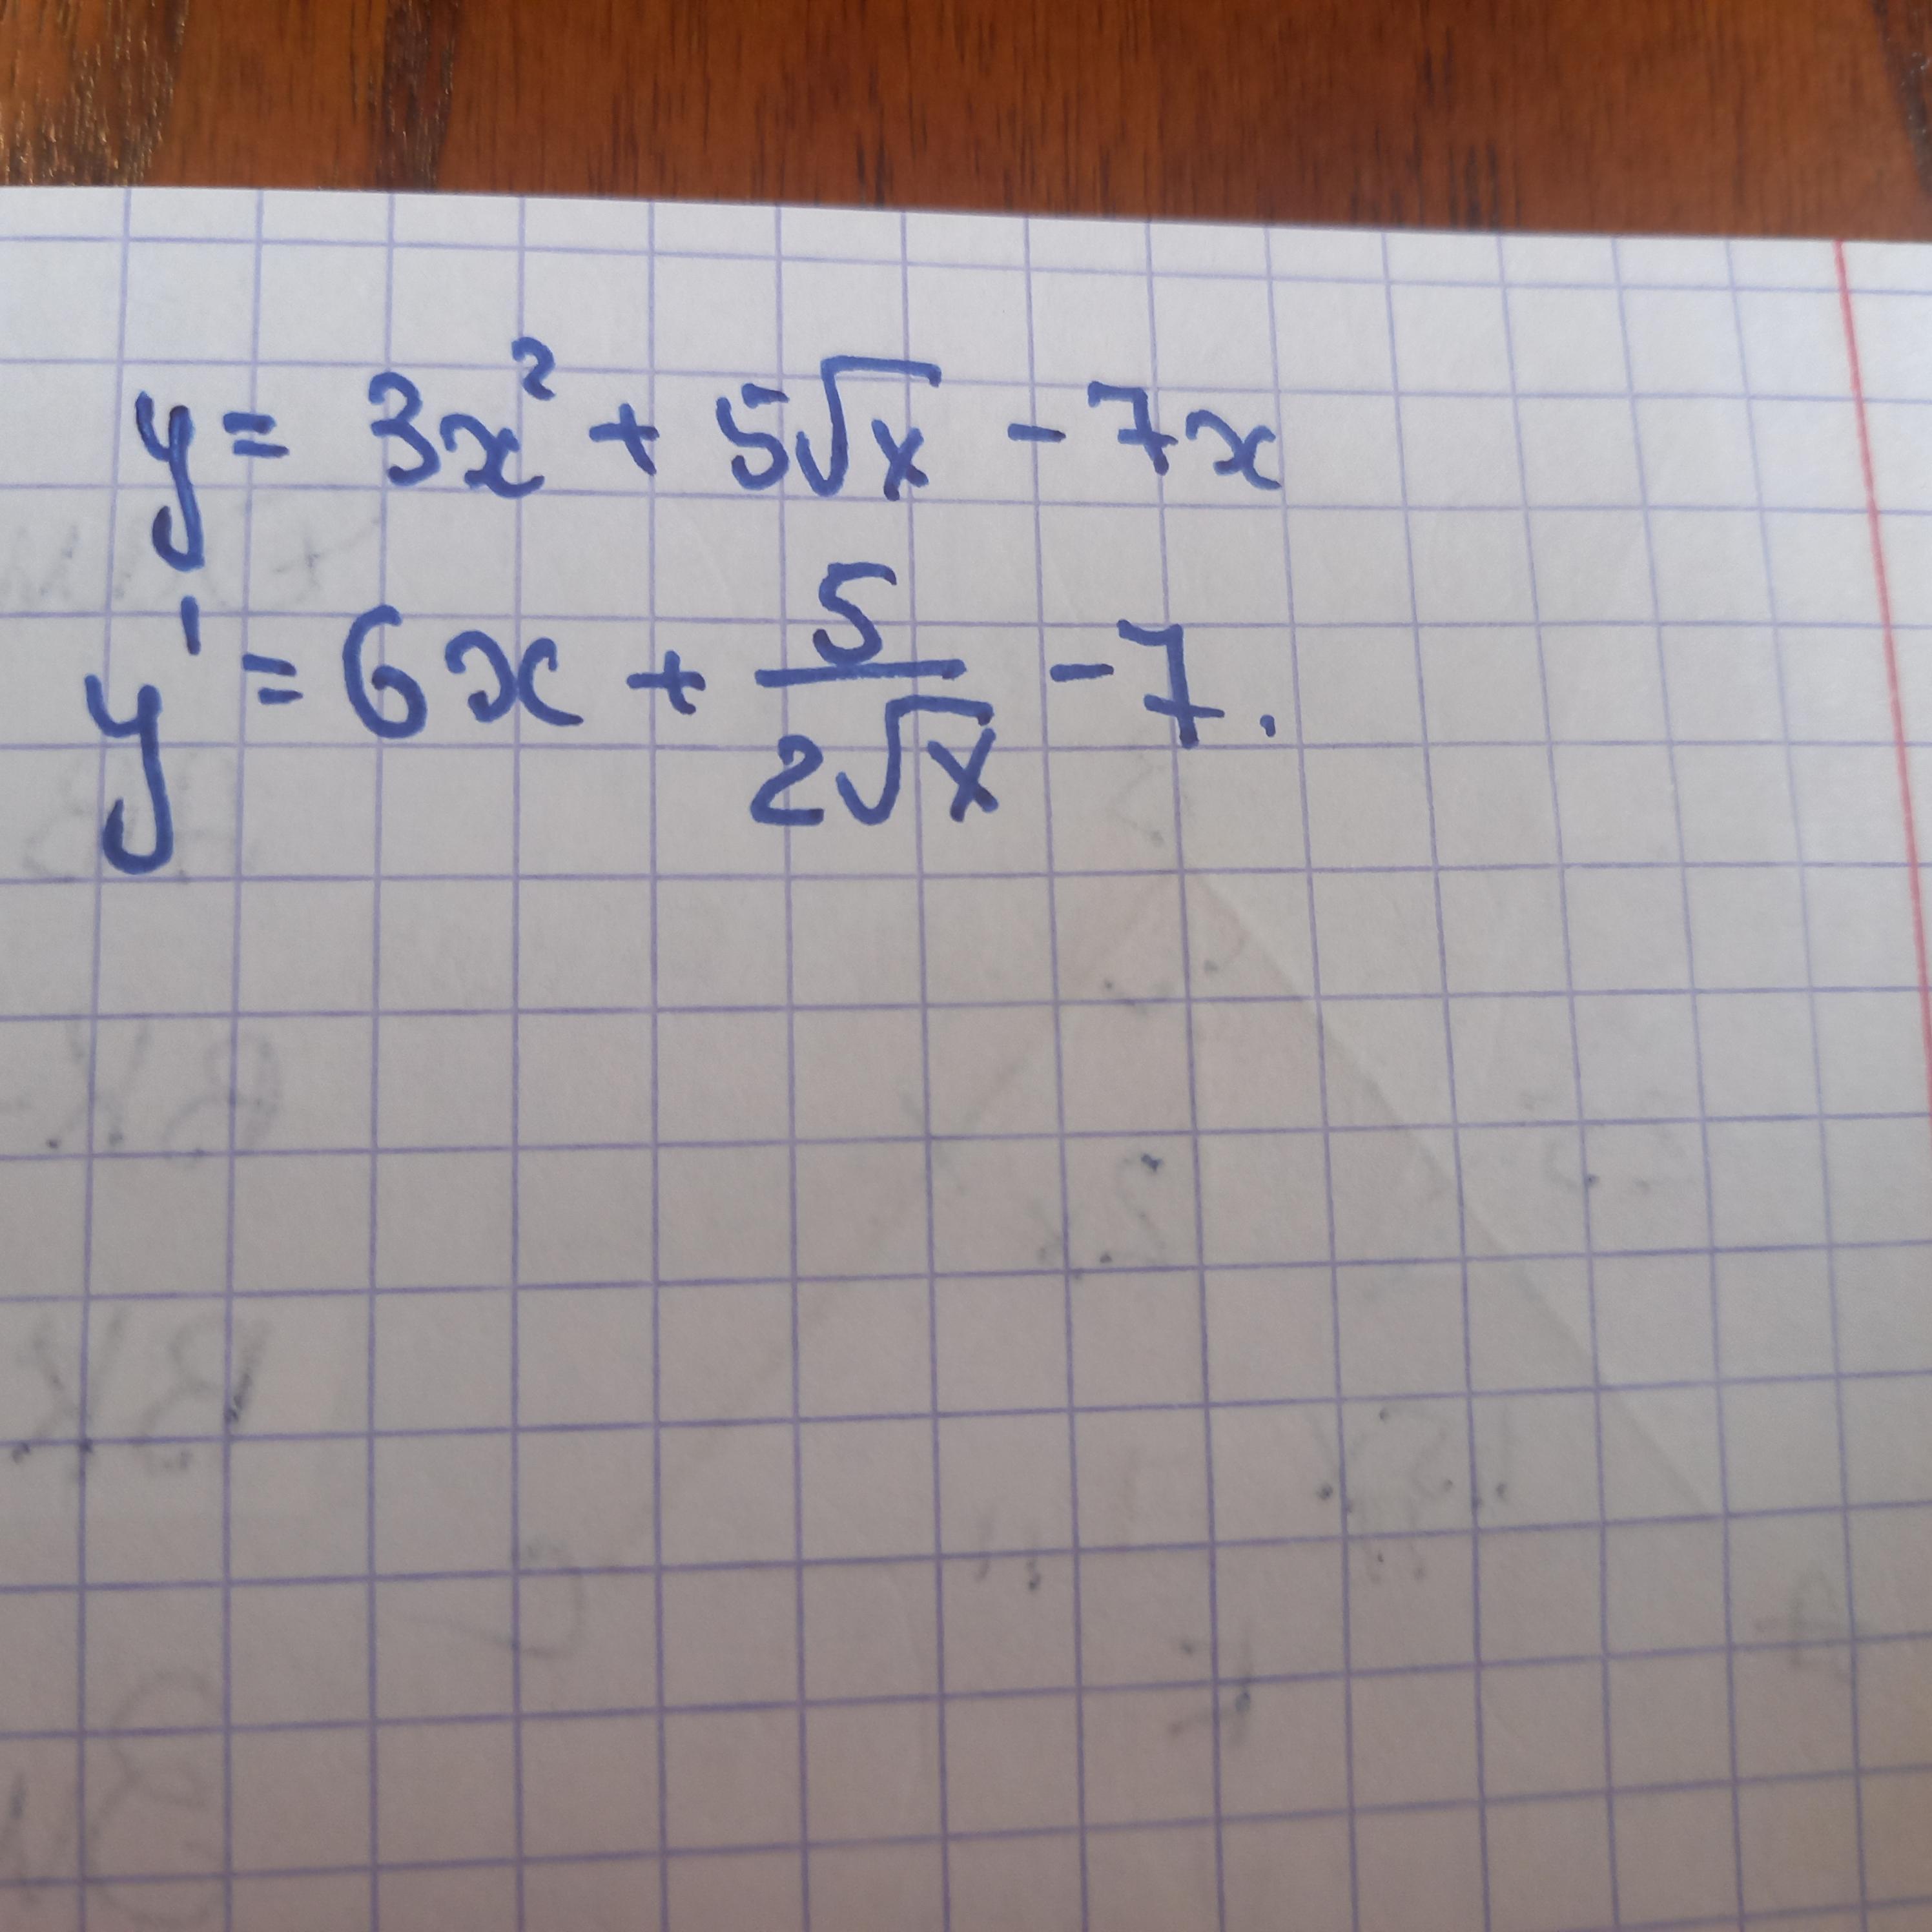 y = 3x² + 5√x - 7x
y' = 6x + 5/(2√x) - 7.